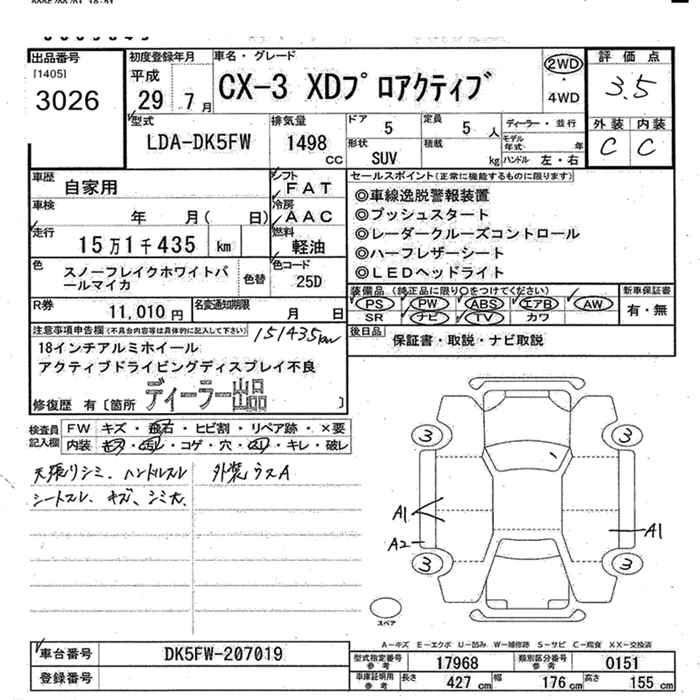 出品番号
[1405]
3026
初度登録年月
平成
29 7月
車名・グレード
CX-3 XDプロアクティブ
2WD
・
4WD
評価点
3.5
型式
LDA-DK5FW
排気量
1498
CC
ドア 5
定員 5 人
形状 SUV
積載 kg
ディーラー・並行
モデル年式 年
ハンドル 左・右
外装 内装
C C
車歴 自家用
シフト FAT
車検 年 月( 日)
冷房 AAC
走行 15万1千435 km
燃料 軽油
色 スノーフレイクホワイトパールマイカ
色替
色コード 25D
R券 11,010円
名変通知期限 月 日
セールスポイント(正常に機能するものに限ります)
◎車線逸脱警報装置
◎プッシュスタート
◎レーダークルーズコントロール
◎ハーフレザーシート
◎LEDヘッドライト
装備品(純正品に限り○をつけてください)
PS PW ABS エアB AW
SR ナビ TV カワ
新車保証書
有・無
後日品 保証書・取説・ナビ取説
注意事項申告欄(不具合内容等は具体的に記入して下さい)
151435km
18インチアルミホイール
アクティブドライビングディスプレイ不良
ディーラー出品
修復歴 有〔箇所 〕
検査員記入欄
FW キズ・飛石・ヒビ割・リペア跡・×要
内装 キズ・汚れ・コゲ・穴・スレ・キレ・破レ
天張りシミ、ハンドルスレ
シートスレ、キズ、シミ大
外装ウスA
3 3
A1 A1
A2
3 3
スペア
A-キズ E-エクボ U-凹み W-補修跡 S-サビ C-腐食 XX-交換済
車台番号 DK5FW-207019
登録番号
型式指定番号参考 17968
類別区分番号参考 0151
車庫証明用参考 長さ 427 cm 幅 176 cm 高さ 155 cm